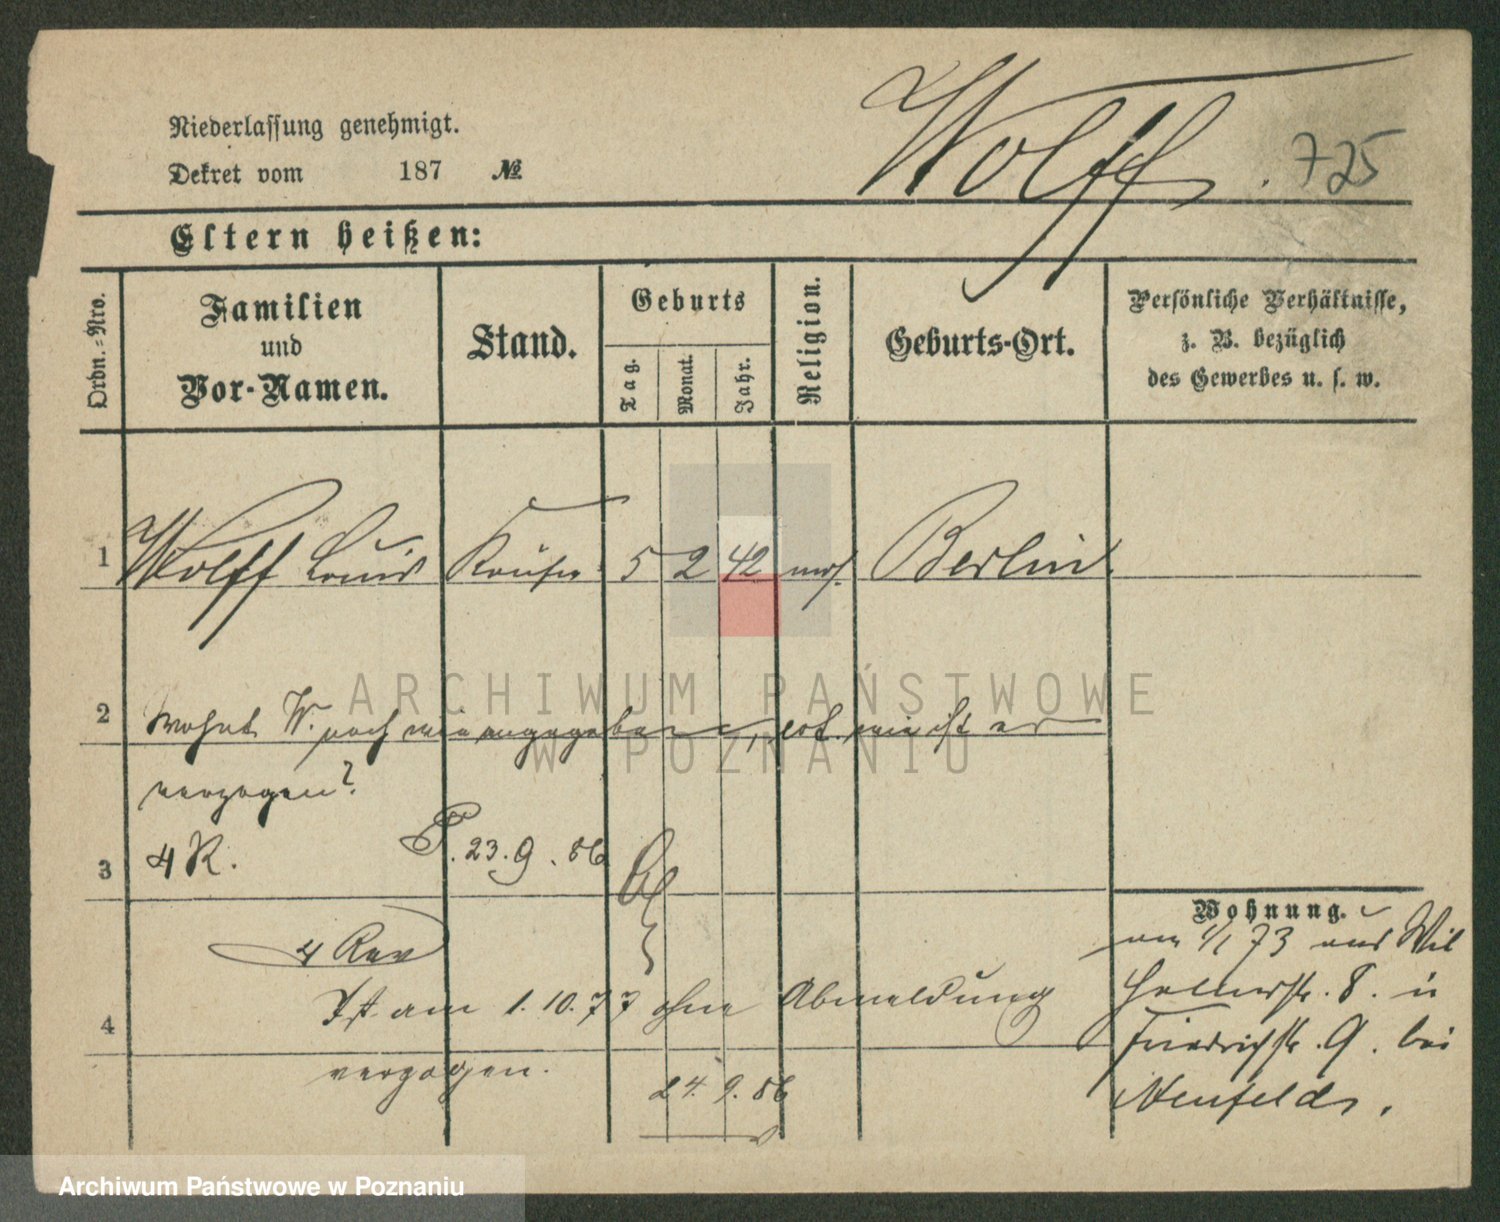 Wolff. 725
Niederlassung genehmigt.
Dekret vom 187 №
Eltern heißen:
Ordn.-Nro.
Familien
und
Vor-Namen.
Stand.
Geburts
Tag.
Monat.
Jahr.
Religion.
Geburts-Ort.
Persönliche Verhältnisse,
z. B. bezüglich
des Gewerbes u. s. w.
1 Wolff Louis 5 2 42 mos. Berlin.
ARCHIWUM PAŃSTWOWE
W POZNANIU
2 Wohnt W. noch wie angegeben, ist er
verzogen?
3 4 R. P. 23.9.86
Wohnung.
4 Rev
am 4/1 73 aus Wil
helmstr. 8. in
4 Ist am 1.10.77 ohne Abmeldung
Friedrichstr. 9. bei
verzogen.
24.9.86
Neufeldt.
Archiwum Państwowe w Poznaniu